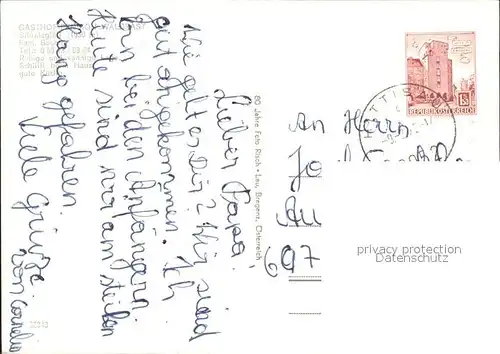 Lieber Papa!
Wie geht es Dir? Wir sind
gut angekommen. Ich
bin bei den Anfängern.
Heute sind wir am steilen
Hang gefahren.
Viele Grüße
von Cornelia
80 Jahre Foto Risch-Lau, Bregenz, Österreich
An Herrn
Jo
Au
697
REPUBLIK ÖSTERREICH
privacy protection
Datenschutz